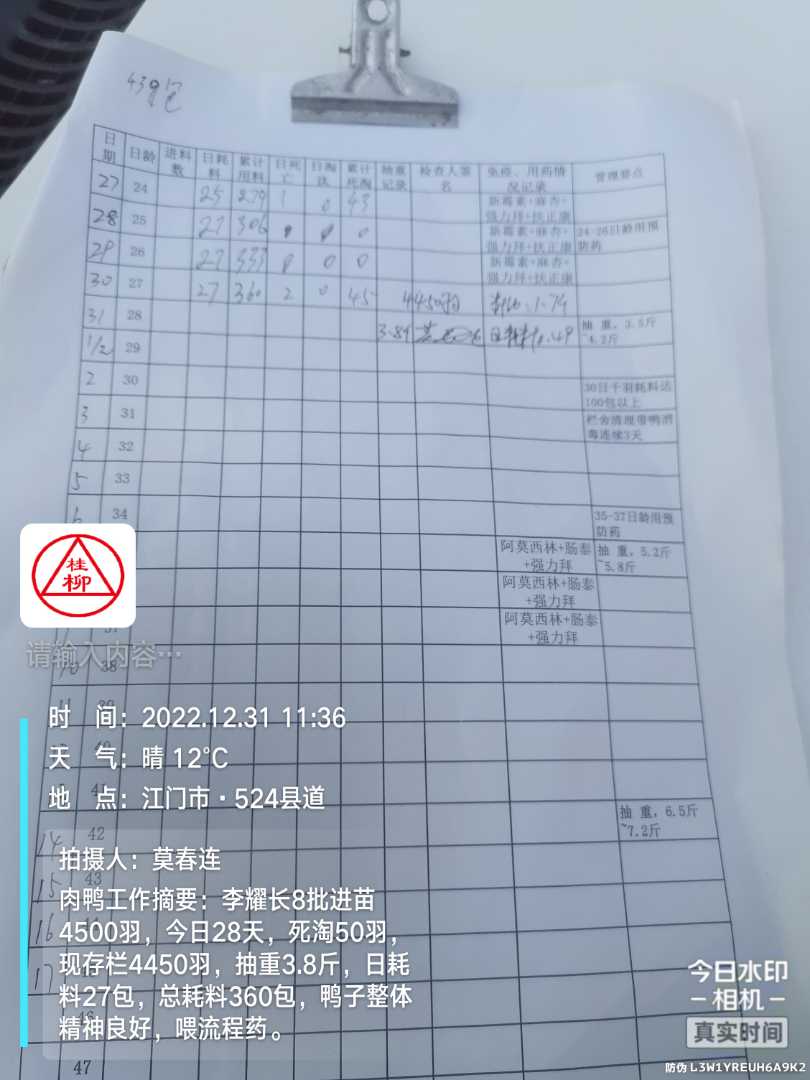 439包
日期 日龄 进料数 日耗料 累计用料 日死亡 日淘汰 累计死淘 抽重记录 检查人签名 免疫、用药情况记录 管理要点
27 24 25 279 1 0 43 新霉素+麻杏+强力拜+扶正康
28 25 27 306 0 0 0 新霉素+麻杏+强力拜+扶正康 24-26日龄用预防药
29 26 27 333 0 0 0 新霉素+麻杏+强力拜+扶正康
30 27 27 360 2 0 45 4450羽 1.74
31 28 3.8斤 抽 重，3.5斤~4.2斤
1/2 29
2 30 30日千羽耗料达100包以上
3 31 栏舍清理带鸭消毒连续3天
4 32
5 33
6 34 35-37日龄用预防药
阿莫西林+肠泰+强力拜 抽 重，5.2斤~5.8斤
阿莫西林+肠泰+强力拜
37 阿莫西林+肠泰+强力拜
10 38
39
41
14 42 抽 重，6.5斤~7.2斤
15 43
16
17
47
桂柳
请输入内容…
时 间：2022.12.31 11:36
天 气：晴 12℃
地 点：江门市·524县道
拍摄人：莫春连
肉鸭工作摘要：李耀长8批进苗
4500羽，今日28天，死淘50羽，
现存栏4450羽，抽重3.8斤，日耗
料27包，总耗料360包，鸭子整体
精神良好，喂流程药。
今日水印
-相机-
真实时间
防伪 L3W1YREUH6A9K2